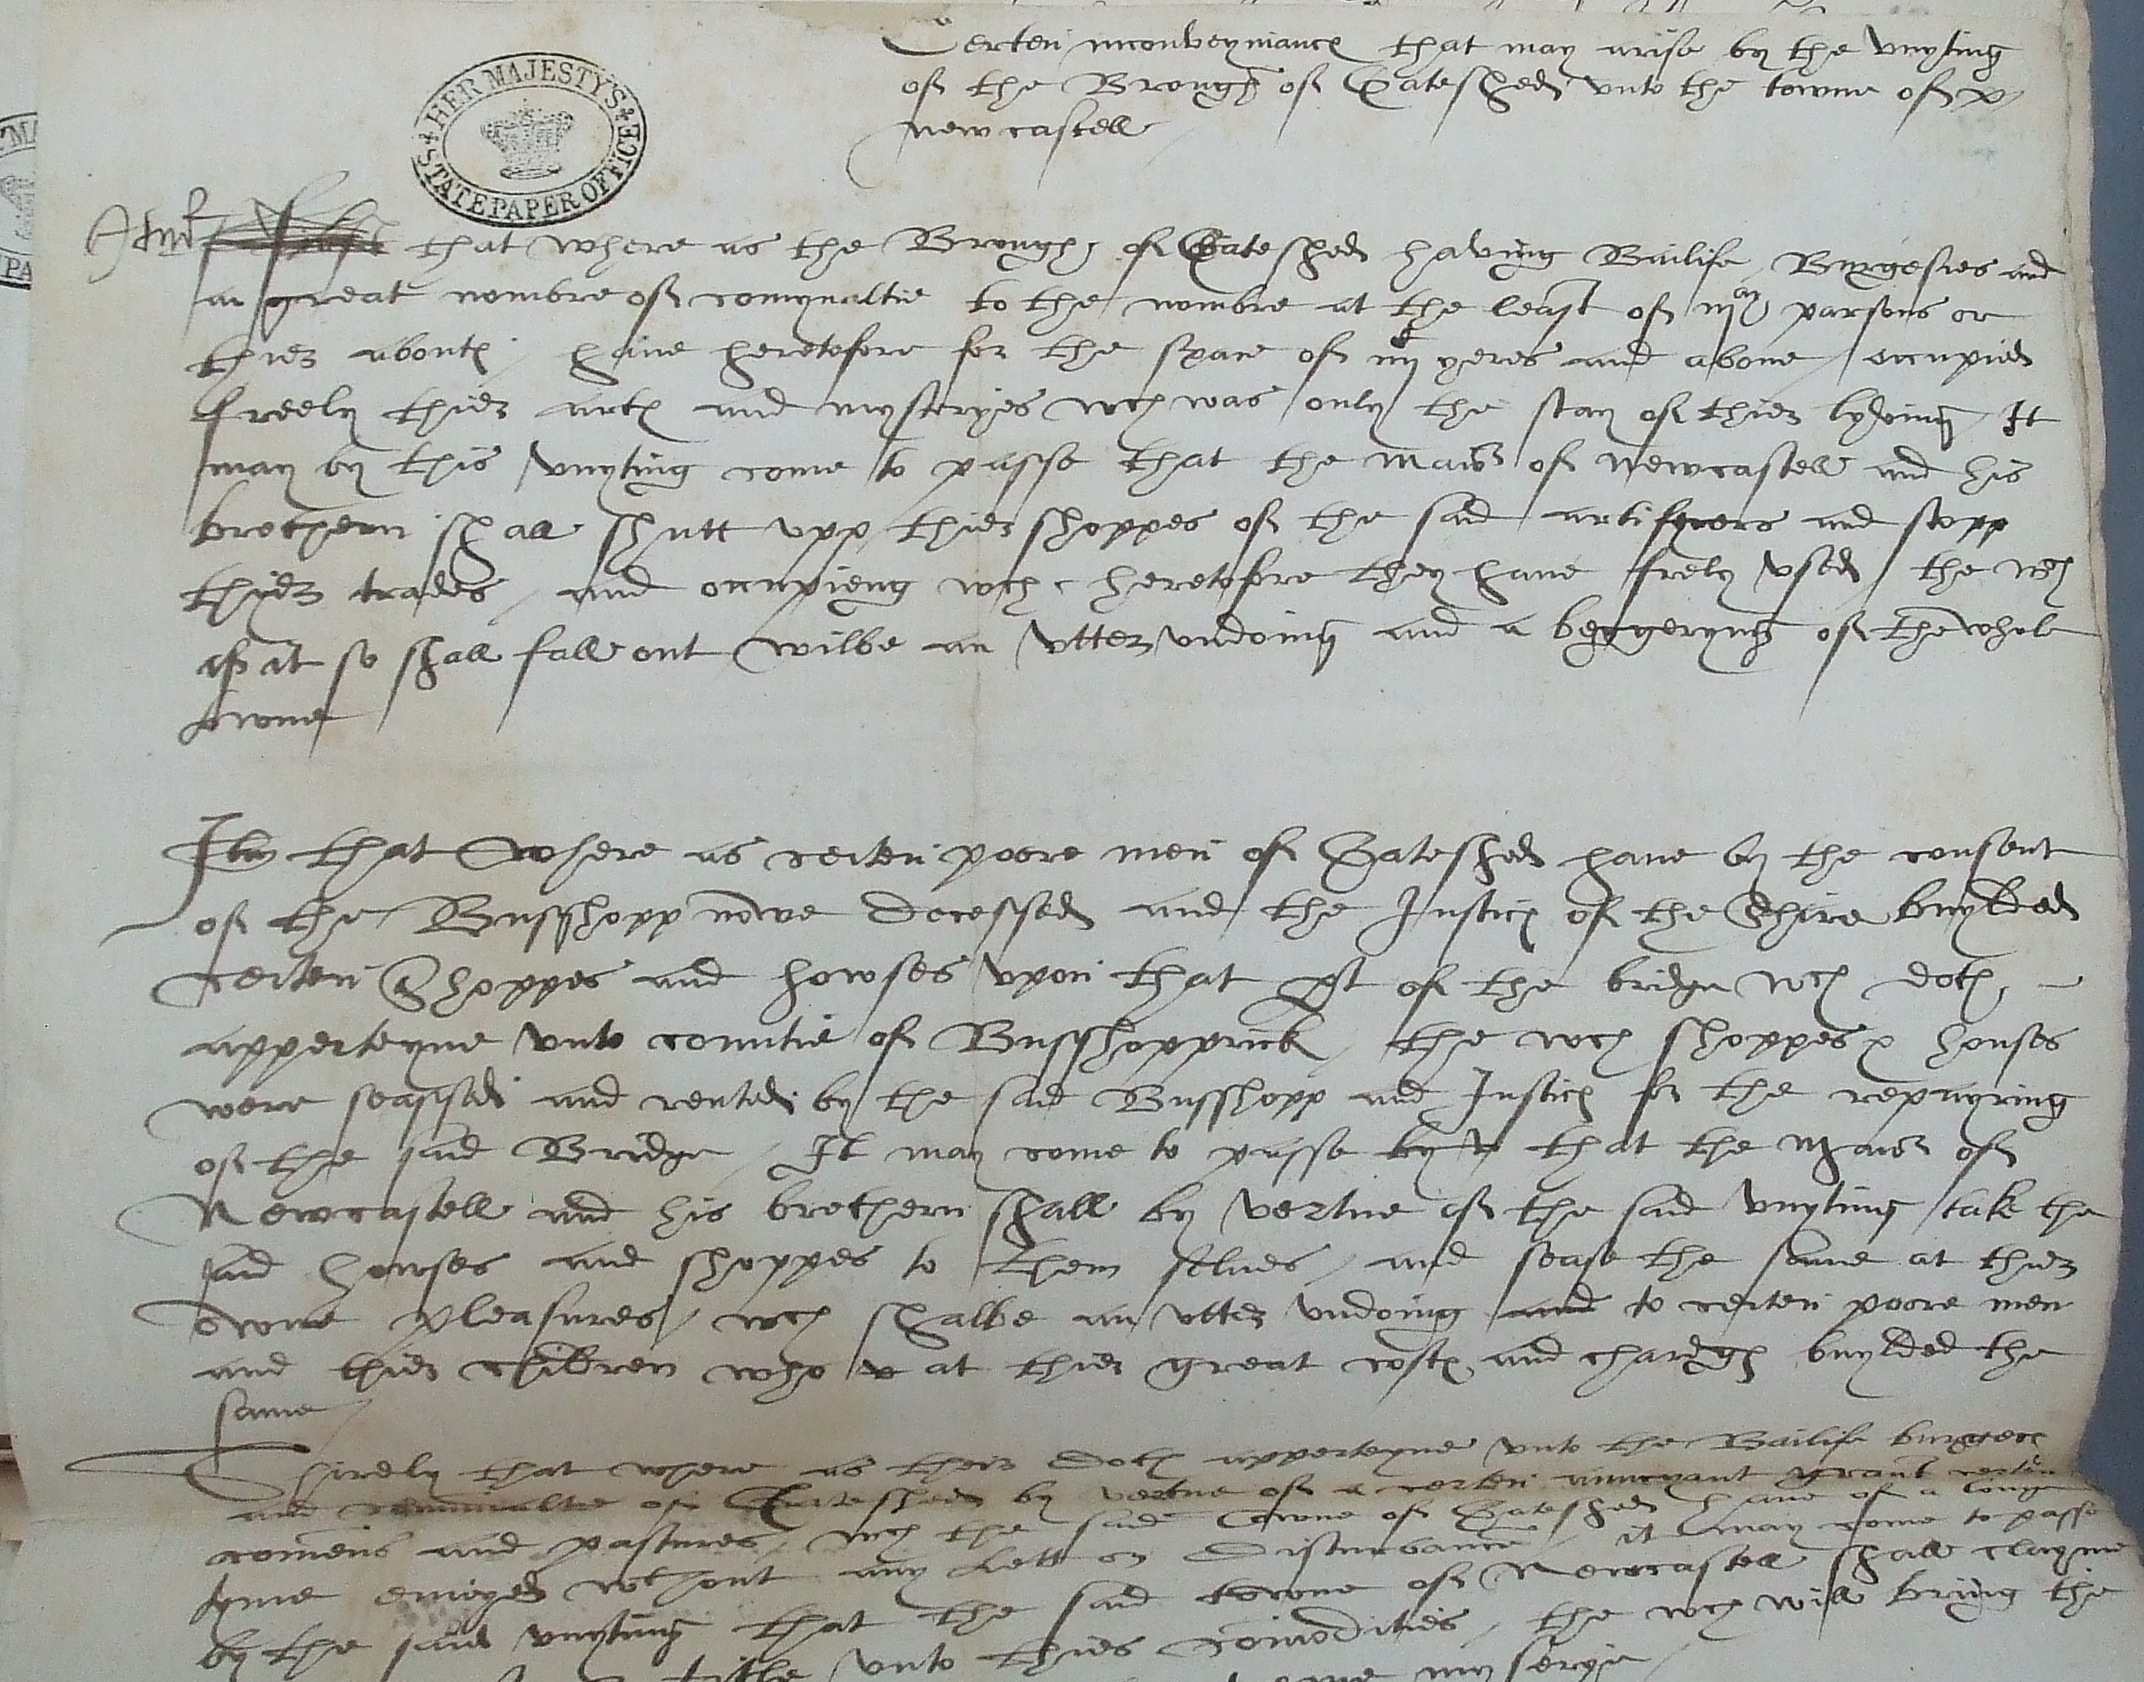 Certen inconveyniancs that may arise by the vnyting
of the Brough of Gateshed vnto the towne of
Newcastell
HER MAJESTY'S STATE PAPER OFFICE
that where as the Brough of Gateshed having Bailife Burgesies and
a great nombre of comynaltie to the nombre at the least of parsons or
thier aboute haue heretofore for the space of iiij yeres and aboue occupied
freely thier arts and mysteryes wch was only the stay of thier lyving It
may by this vnyting come to passe that the maior of newcastell and his
brethern shall shutt vpp thier shoppes of the said artificers and stopp
thier trades and occupieng wch heretofore they haue frely vsed the wch
if it so shall fall out wilbe an vtter vndoing and a beggeryng of the whole
towne
Itm that where as certen poore men of Gateshed haue by the consent
of the Busshopp nowe decessed and the Justics of the Shire buylded
certen Shoppes and howses vpon that pt of the bridge wch doth
apperteyne vnto countie of Busshopprick the wch shoppes & houses
were seassed and rented by the said Busshopp and Justics for the repayring
of the said Bridge It may come to passe by that the Maior of
Newcastell and his brethern shall by vertue of the said vnyting take the
said howses and shoppes to them selues and sease the same at thier
owne pleasures wch shalbe an vtter vndoing and to certen poore men
and thier children who at thier great costs and chardgs buylded the
same
Thirdly that where as their doth apperteyne vnto the Bailife burgeses
and comunaltie of Gateshed by vertue of a certen auncyant graunt certen
comens and pastures wch the said Towne of Gateshed haue of a longe
tyme enioyed wthout any lett or Disturbance it may come to passe
by the said vnyting that the said towne of Newcastell shall clayme
title vnto thies comodities the wch will bring the
myserye